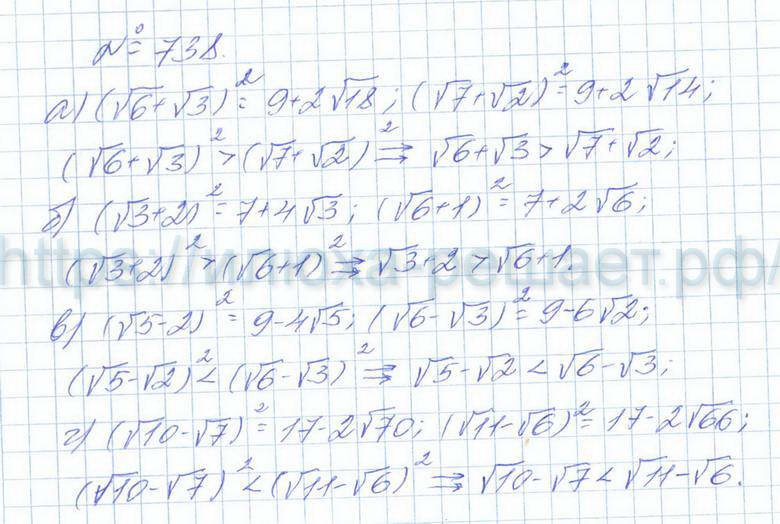 № 738.
а) (√6+√3)²= 9+2√18; (√7+√2)²= 9+2√14;
(√6+√3)² > (√7+√2)² ⇒ √6+√3 > √7+√2;
б) (√3+2)²= 7+4√3; (√6+1)²= 7+2√6;
(√3+2)² > (√6+1)² ⇒ √3+2 > √6+1.
https://илюха-решает.рф/
в) (√5-2)²= 9-4√5; (√6-√3)²= 9-6√2;
(√5-√2)² < (√6-√3)² ⇒ √5-√2 < √6-√3;
г) (√10-√7)²= 17-2√70; (√11-√6)²= 17-2√66;
(√10-√7)² < (√11-√6)² ⇒ √10-√7 < √11-√6.